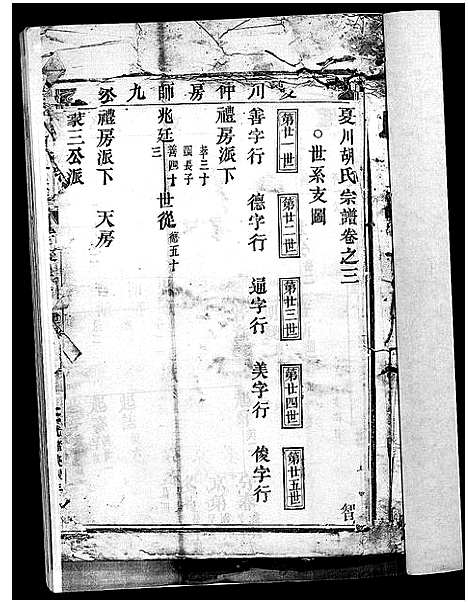 夏川胡氏宗譜卷之三
○世系支圖
智
第廿一世 第廿二世 第廿三世 第廿四世 第廿五世
善字行 德字行 通字行 美字行 俊字行
川 仲 房 師 九
禮房派下
孝三十
國長子
善四十 世從 德五十
兆廷三
禮房派下 天房
裴三公派